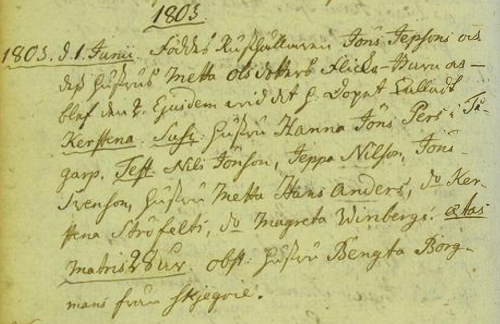 1803
1803. d. 1. Junii. Föddes Rusthållaren Jöns Jepsons och
dess Hustrus Metta Olsdotters Flicka-Barn, as-
blef den 2. Ejusdem wid det H. Dopet Kalladt
Kerstena. Susc: Hustru Hanna Jöns Pers i Tå-
garp. Test. Nils Jönson, Jeppa Nilson, Jöns
Svenson, Hustru Metta Hans Anders, do Ker-
stena Ströfelts, do Magreta Winbergs. Ætas
Matris 28 år. obst: Hustru Bengta Borg-
mans från Skjegrie.